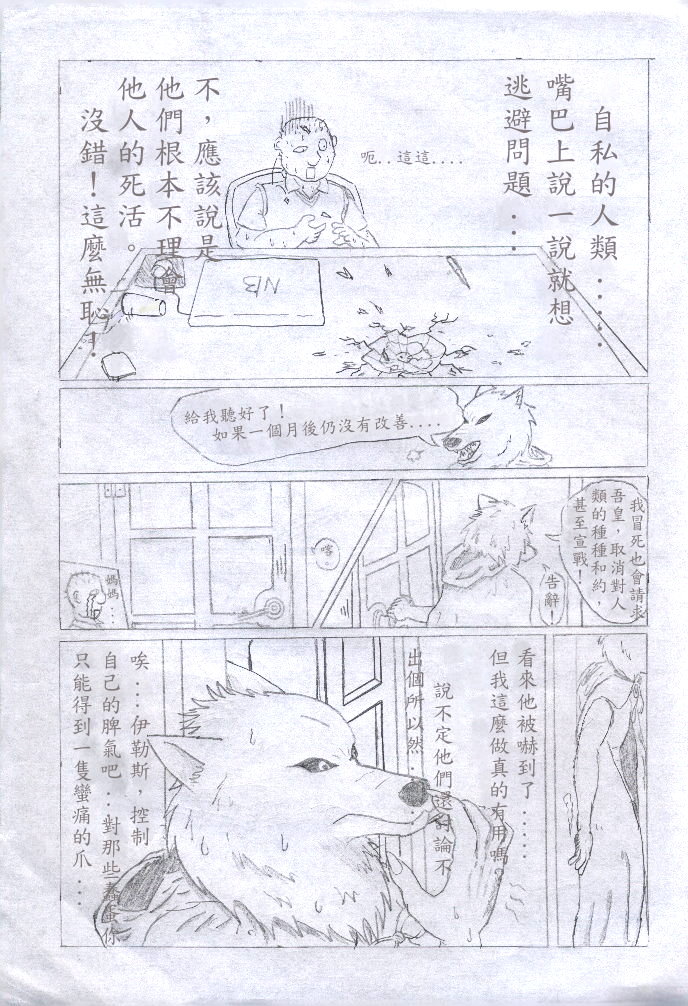 自私的人類....
嘴巴上說一說就想
逃避問題...
呃..這這....
不，應該說是
他們根本不理會
他人的死活。
沒錯！這麼無恥！
NB
給我聽好了！
如果一個月後仍沒有改善....
我冒死也會請求
吾皇，取消對人
類的種種和約，
甚至宣戰！
告辭！
嗒
媽媽...
看來他被嚇到了.....
但我這麼做真的有用嗎？
說不定他們還討論不
出個所以然.....
唉...伊勒斯，控制
自己的脾氣吧..對那些蠢蛋你
只能得到一隻蠻痛的爪...